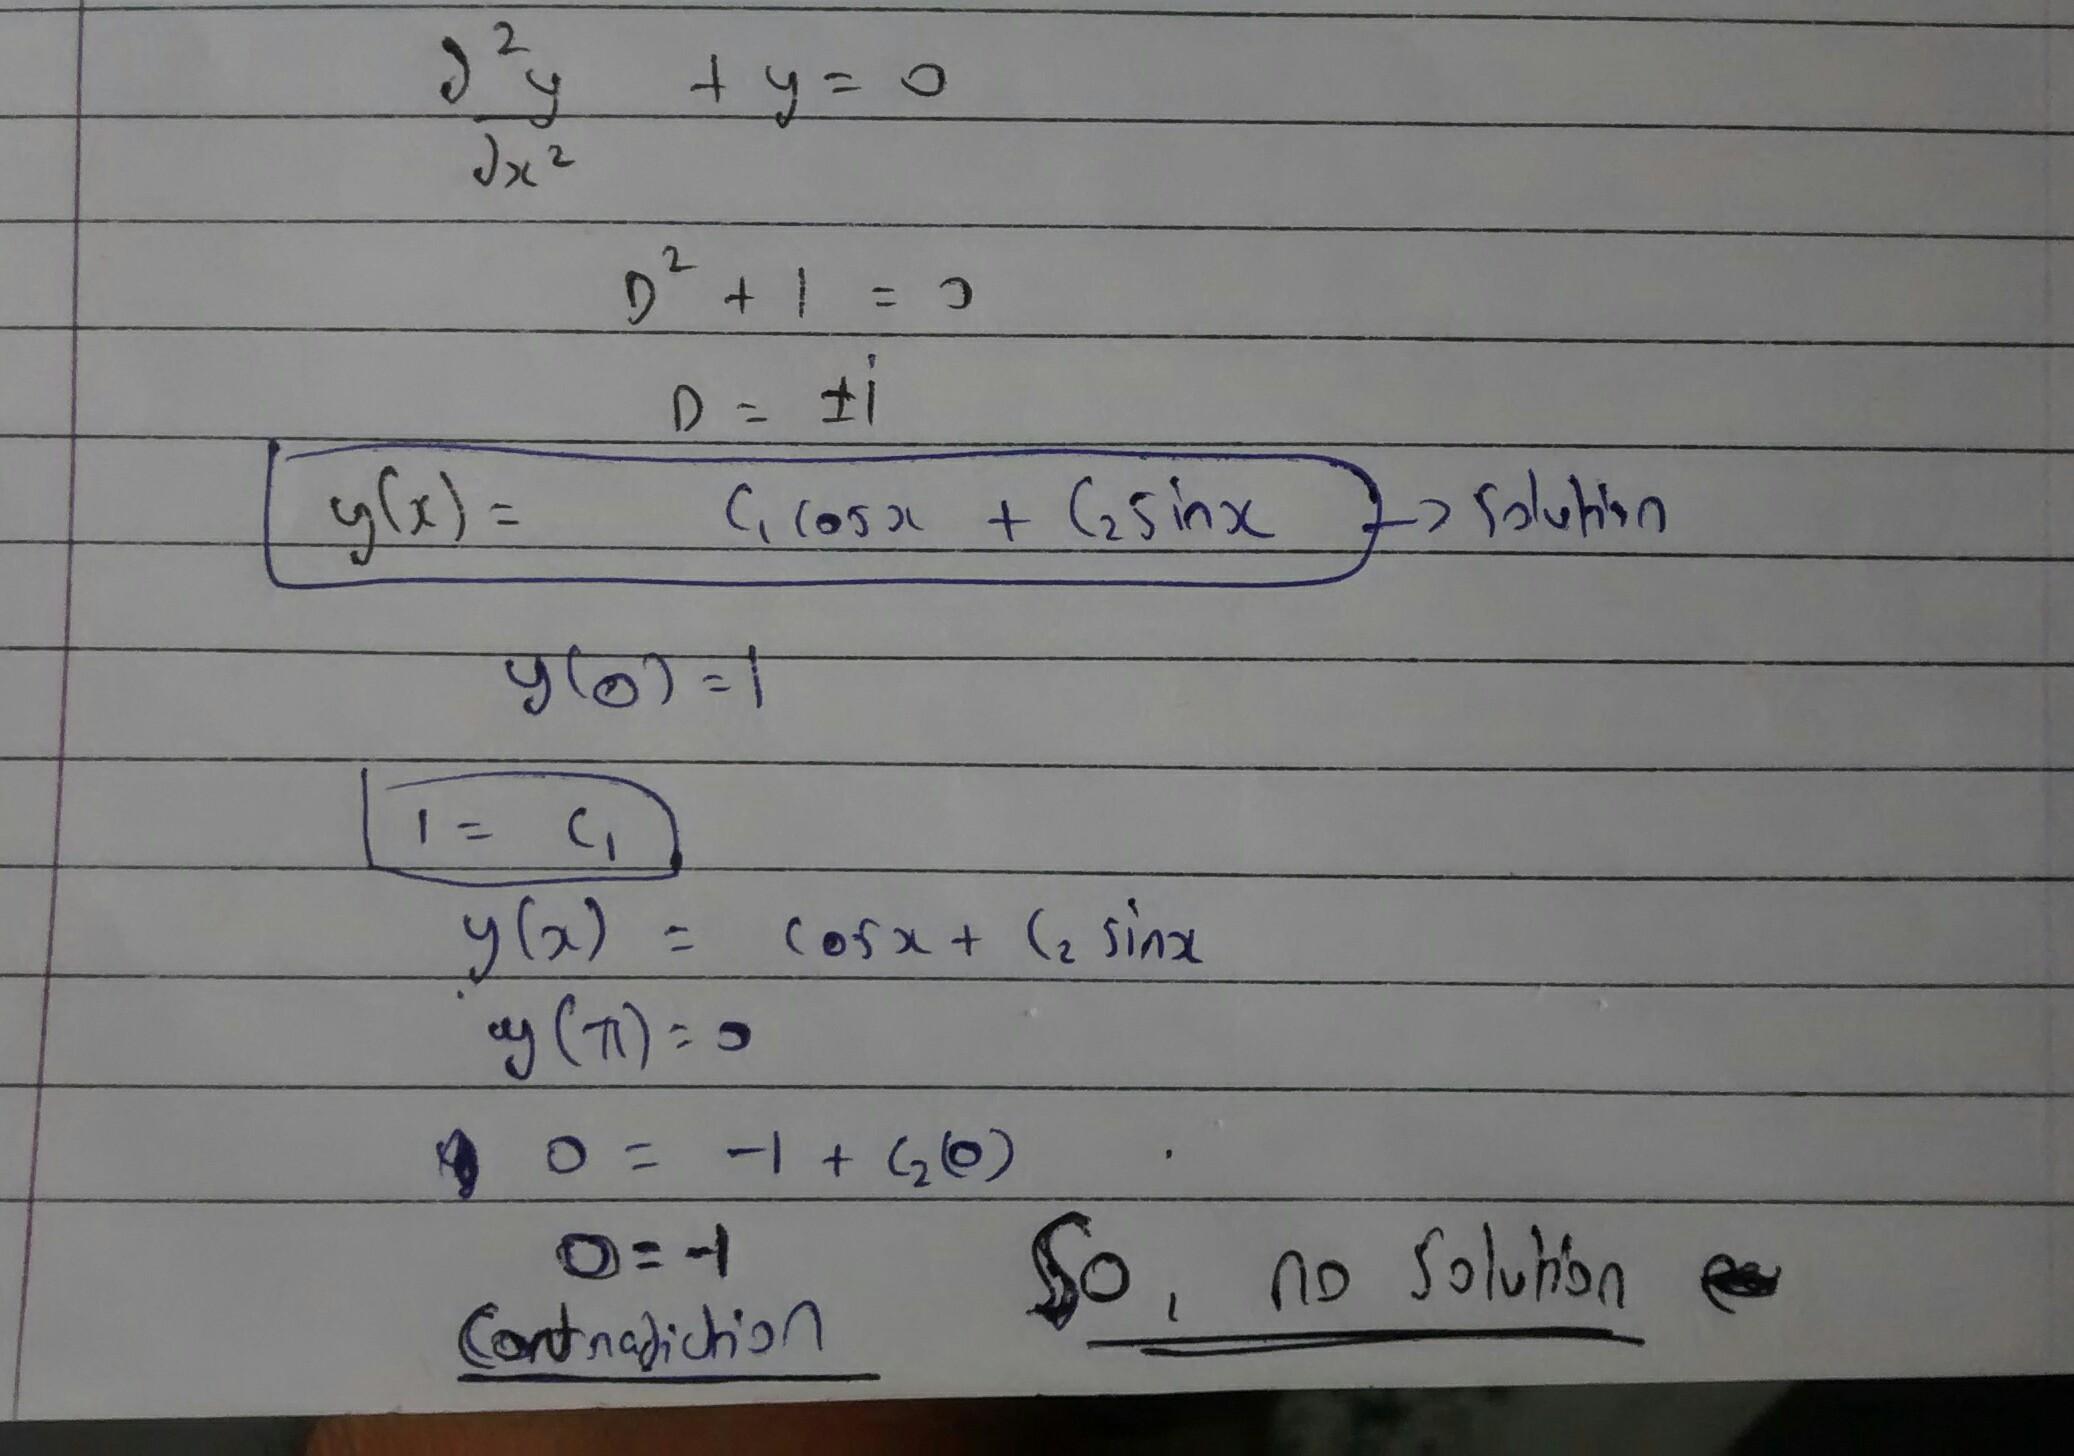 d²y/dx² + y = 0
D² + 1 = 0
D = ±i
y(x) = C₁ cosx + C₂ sinx → solution
y(0) = 1
1 = C₁
y(x) = cosx + C₂ sinx
y(π) = 0
0 = -1 + C₂(0)
0 = -1
Contradiction
So, no solution